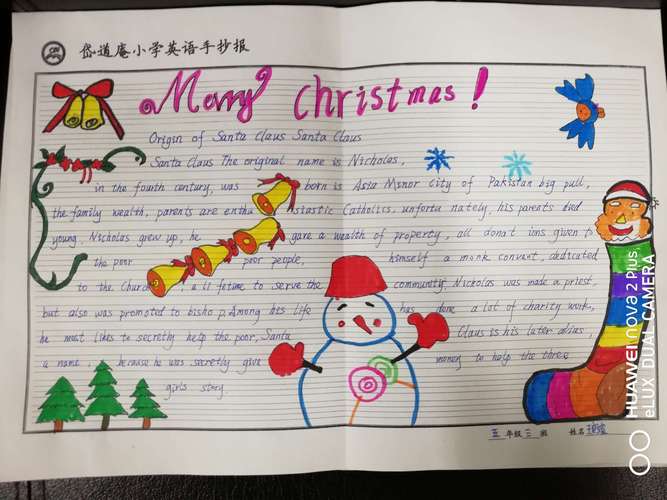 岱道庵小学英语手抄报
Merry christmas!
Origin of Santa Claus Santa Claus
Santa Claus The original name is Nicholas,
in the fourth century, was born is Asia Minor City of Pakistan big pull,
the family wealth, parents are enthu siastic Catholics, unfortu nately, his parents died
young, Nicholas grew up, he gave a wealth of property, all donat ions given to
the poor poor people, himself a monk convent, dedicated
to the Church a li fetime to serve the community, Nickolas was made a priest,
but also was promoted to bisho p, Among his life has done a lot of charity work,
he most likes to secretly help the poor, Santa Claus is his later alias,
a name, because he was secretly give money to help the three
girls story.
五 年级 三 班 姓名
HUAWEI nova 2 Plus
eLUX DUAL CAMERA